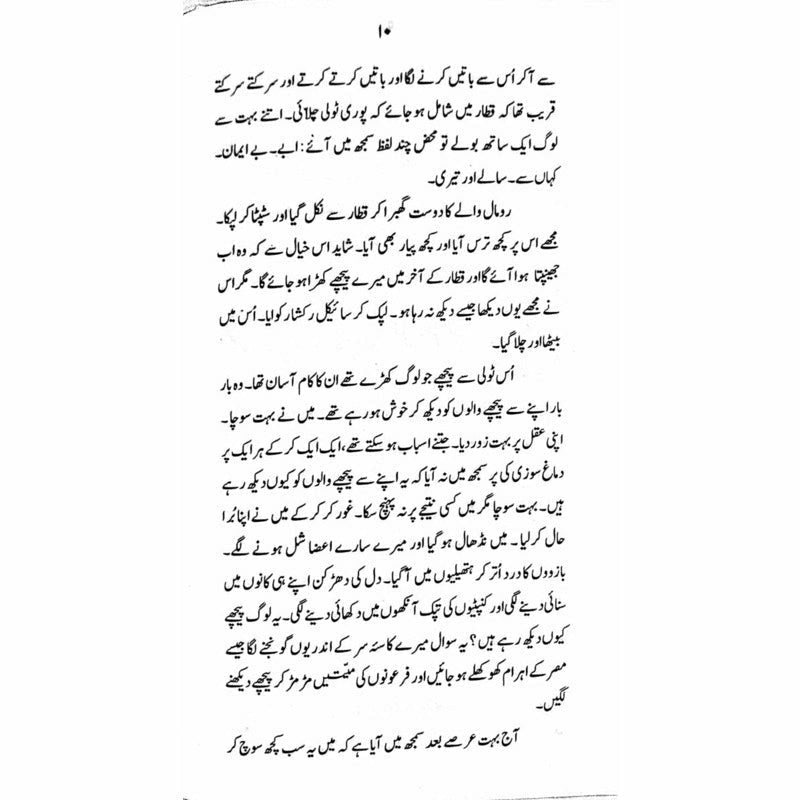 ۱۰
سے آکر اُس سے باتیں کرنے لگا اور باتیں کرتے کرتے اور سرکتے سرکتے
قریب تھا کہ قطار میں شامل ہو جائے کہ پوری ٹولی چلّائی۔ اتنے بہت سے
لوگ ایک ساتھ بولے تو محض چند لفظ سمجھ میں آئے: ابے۔ بے ایمان۔
کہاں سے۔ سالے اور تیری۔
رومال والے کا دوست گھبرا کر قطار سے نکل گیا اور سٹپٹا کر لپکا۔
مجھے اس پر کچھ ترس آیا اور کچھ پیار بھی آیا۔ شاید اس خیال سے کہ وہ اب
جھینپتا ہوا آئے گا اور قطار کے آخر میں میرے پیچھے کھڑا ہو جائے گا۔ مگر اس
نے مجھے یوں دیکھا جیسے دیکھ نہ رہا ہو۔ لپک کر سائیکل رکشا رکوایا۔ اُس میں
بیٹھا اور چلا گیا۔
اُس ٹولی سے پیچھے جو لوگ کھڑے تھے ان کا کام آسان تھا۔ وہ بار
بار اپنے سے پیچھے والوں کو دیکھ کر خوش ہو رہے تھے۔ میں نے بہت سوچا۔
اپنی عقل پر بہت زور دیا۔ جتنے اسباب ہو سکتے تھے، ایک ایک کر کے ہر ایک پر
دماغ سوزی کی پر سمجھ میں نہ آیا کہ یہ اپنے سے پیچھے والوں کو کیوں دیکھ رہے
ہیں۔ بہت سوچا مگر میں کسی نتیجے پر نہ پہنچ سکا۔ غور کر کر کے میں نے اپنا بُرا
حال کر لیا۔ میں نڈھال ہو گیا اور میرے سارے اعضا شل ہونے لگے۔
بازووں کا درد اُتر کر ہتھیلیوں میں آ گیا۔ دل کی دھڑکن اپنے ہی کانوں میں
سنائی دینے لگی اور کنپٹیوں کی تپک آنکھوں میں دکھائی دینے لگی۔ یہ لوگ پیچھے
کیوں دیکھ رہے ہیں؟ یہ سوال میرے کاسۂ سر کے اندر یوں گونجنے لگا جیسے
مصر کے اہرام کھوکھلے ہو جائیں اور فرعونوں کی میّتیں مڑ مڑ کر پیچھے دیکھنے
لگیں۔
آج بہت عرصے بعد سمجھ میں آیا ہے کہ میں یہ سب کچھ سوچ کر